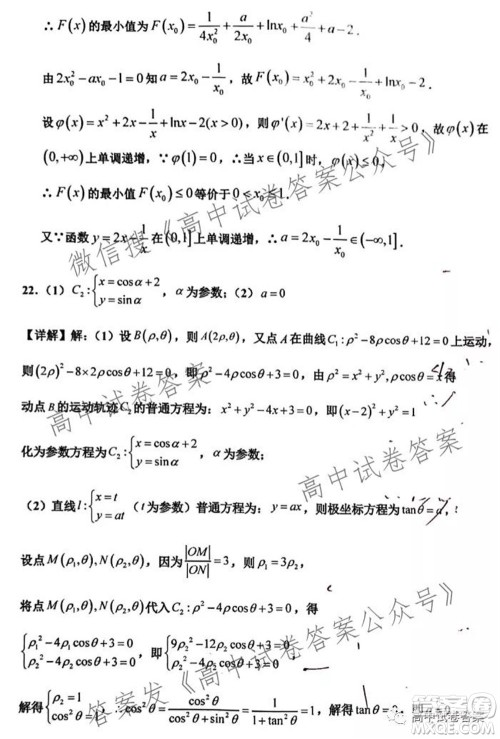 ∴ F(x) 的最小值为 F(x₀) = 1/(4x₀²) + a/(2x₀) + lnx₀ + a²/4 + a - 2．
由 2x₀² - ax₀ - 1 = 0 知 a = 2x₀ - 1/x₀，故 F(x₀) = x₀² + 2x₀ - 1/x₀ + lnx₀ - 2．
设 φ(x) = x² + 2x - 1/x + lnx - 2(x>0)，则 φ'(x) = 2x + 2 + 1/x² + 1/x > 0，故 φ(x) 在
(0,+∞) 上单调递增，∵ φ(1) = 0，∴ 当 x∈(0,1] 时，φ(x) ≤ 0，
∴ F(x) 的最小值 F(x₀) ≤ 0 等价于 0 < x₀ ≤ 1．
又∵函数 y = 2x - 1/x 在 (0,1] 上单调递增，∴ a = 2x₀ - 1/x₀ ∈ (-∞,1]．
22．（1）C₂:{x = cosα + 2, y = sinα，α 为参数；（2）a = 0
【详解】解：（1）设 B(ρ,θ)，则 A(2ρ,θ)，又点 A 在曲线 C₁: ρ² - 8ρcosθ + 12 = 0 上运动，
则 (2ρ)² - 8×2ρcosθ + 12 = 0，即 ρ² - 4ρcosθ + 3 = 0，由 ρ² = x² + y², ρcosθ = x 得
动点 B 的运动轨迹 C₂ 的普通方程为：x² + y² - 4x + 3 = 0，即 (x-2)² + y² = 1
化为参数方程为 C₂:{x = cosα + 2, y = sinα，α 为参数；
（2）直线 l:{x = t, y = at（t 为参数）普通方程为：y = ax，则极坐标方程为 tanθ = a，
设点 M(ρ₁,θ), N(ρ₂,θ)，因为 |OM|/|ON| = 3，则 ρ₁ = 3ρ₂，
将点 M(ρ₁,θ), N(ρ₂,θ) 代入 C₂: ρ² - 4ρcosθ + 3 = 0，得
{ρ₁² - 4ρ₁cosθ + 3 = 0, ρ₂² - 4ρ₂cosθ + 3 = 0，即 {9ρ₂² - 12ρ₂cosθ + 3 = 0, ρ₂² - 4ρ₂cosθ + 3 = 0
解得 {ρ₂ = 1, cos²θ = 1，∴ cos²θ = cos²θ/(cos²θ + sin²θ) = 1/(1 + tan²θ) = 1，解得 tanθ =
微信搜《高中试卷答案公众号》
高中试卷答案
高中试卷答案
答案发《高中试卷答案公众号》
高中试卷答案